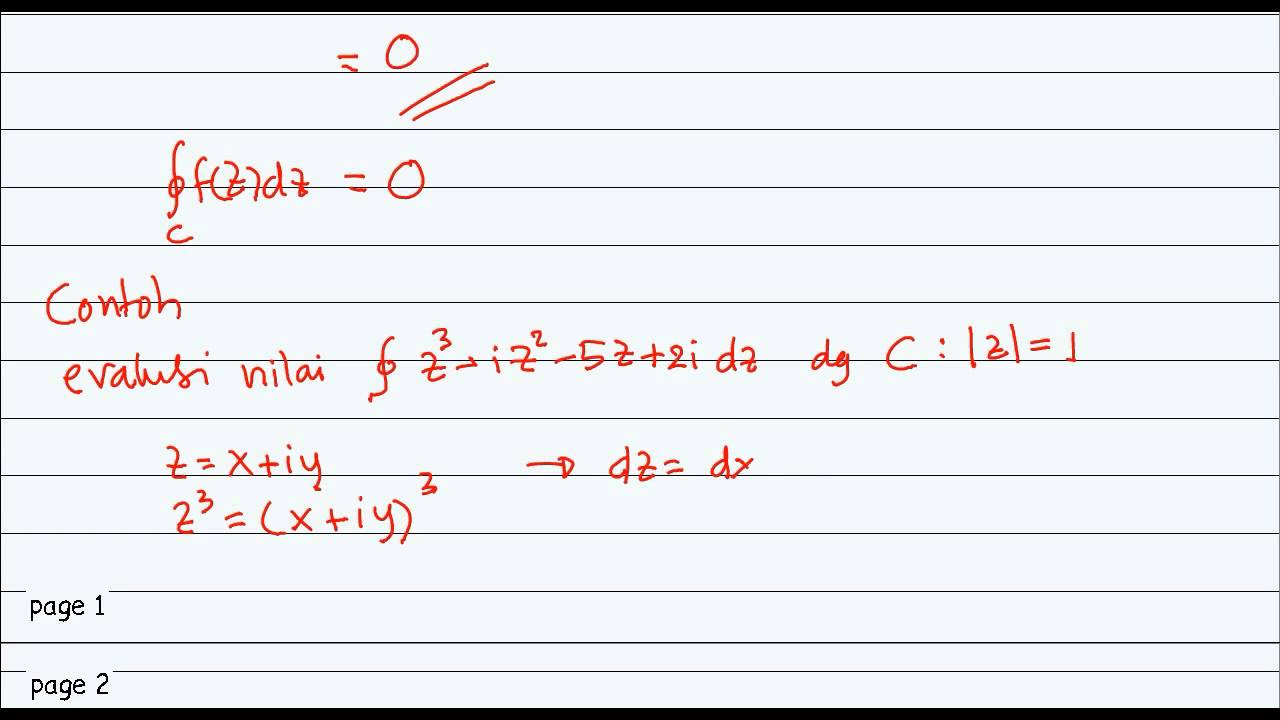 = 0
∮f(z)dz = 0
C
Contoh
evalusi nilai ∮ z³ - iz² - 5z + 2i dz dg C : |z| = 1
z = x + iy → dz = dx
z³ = (x + iy)³
page 1
page 2